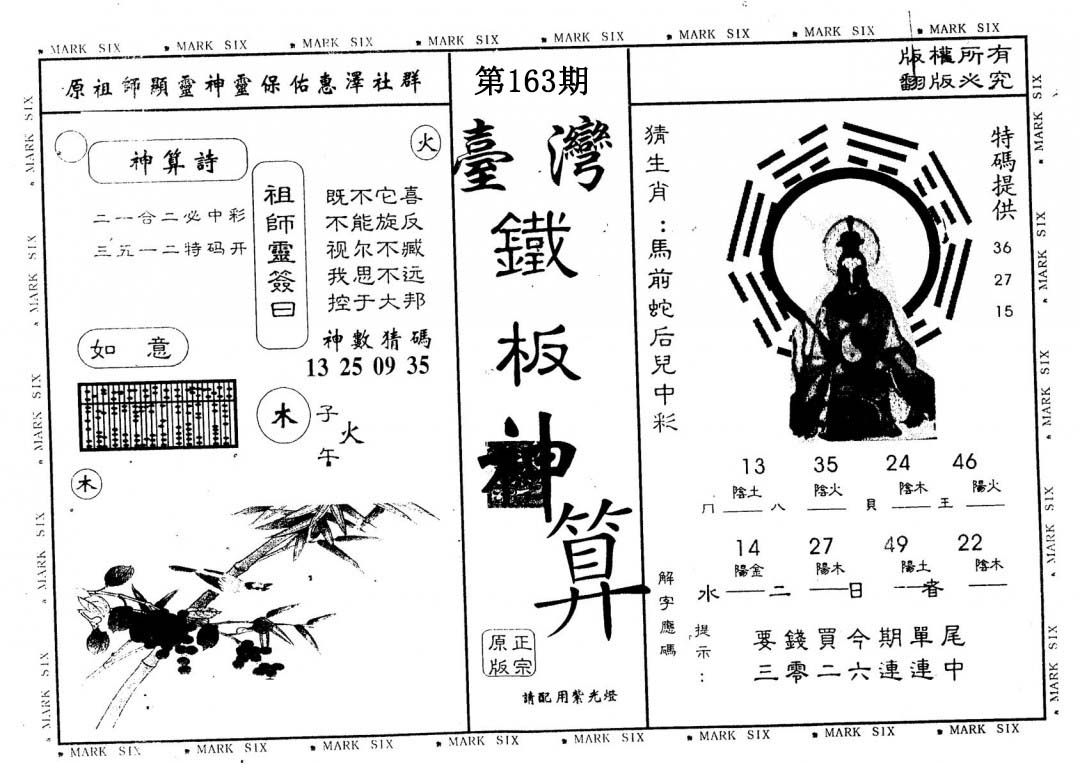 MARK SIX MARK SIX MARK SIX MARK SIX MARK SIX MARK SIX MARK SIX MARK SIX
原祖師顯靈神靈保佑惠澤社群
第163期
版權所有
翻版必究
火
神算詩
二一合二必中彩
三五一二特码开
祖師靈簽曰
既不它喜
不能旋反
视尔不臧
我思不远
控于大邦
神數猜碼
13 25 09 35
如意
木
子
火
午
木
臺灣
鐵
板
神
算
正宗
原版
請配用紫光燈
猜生肖：馬前蛇后兒中彩
特碼提供
36
27
15
13 35 24 46
陰土 陰火 陰木 陽火
冂 八 貝 王
14 27 49 22
陽金 陽木 陽土 陰木
水 二 日 者
解字應碼
提示：
要錢買今期單尾
三零二六連連中
MARK SIX MARK SIX MARK SIX MARK SIX MARK SIX
MARK SIX MARK SIX MARK SIX MARK SIX MARK SIX
MARK SIX MARK SIX MARK SIX MARK SIX MARK SIX MARK SIX MARK SIX MARK SIX